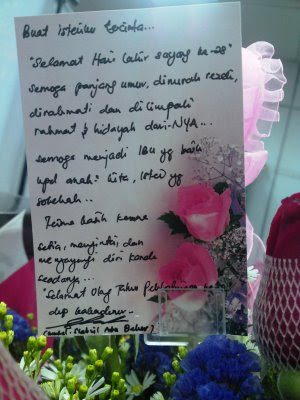 Buat isteriku tercinta...
"Selamat Hari Lahir sayang ke-28"
semoga panjang umur, dimurah rezeki,
dirahmati dan dilimpahi
rahmat & hidayah dari-NYA...
semoga menjadi IBU yg baik
utk anak² kita, isteri yg
solehah...
Terima kasih kerana
setia, menyintai dan
menyayangi diri kanda
seadanya...
Selamat Ulang Tahun Perkahwinan